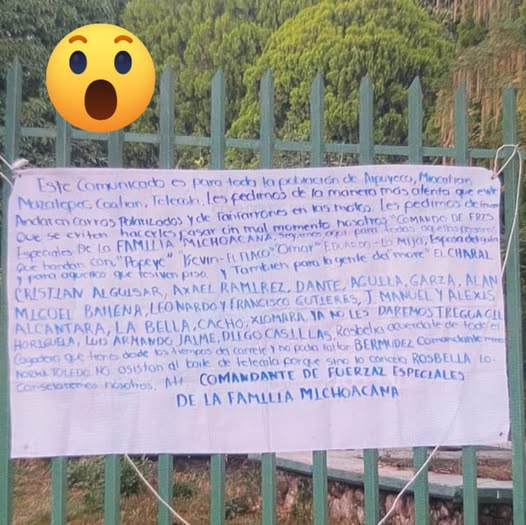 Este Comunicado es para toda la población de Alpuyeca, Miacatlan,
Mazatepec, Coatlan, Tetecala, les pedimos de la manera más atenta que eviten
Andar en carros Polarizados y de fanfarrones en las motos. Les pedimos de favor
Que se eviten hacerles pasar un mal momento nosotros "COMANDO DE FRZS
Especiales De la FAMILIA MICHOACANA, seguimos aqui para todas aquellas personas
Que bordan con, "Popeye" Kevin - El FLACO "Omar" EDUARDO - LO MIJA, Esposa del
y para aquellos que les sirven piso. y También para la gente del more" EL CHARAL
CRISTIAN ALGUISAR, AXAEL RAMIREZ, DANTE, AGUILLA, GARZA, ALAN
MIGUEL BAHENA, LEONARDO Y FRANCISCO GUTIERES, J. MANUEL Y ALEXIS
ALCANTARA, LA BELLA, CACHO, XIOMARA YA NO LES DAREMOS TREGUA GIL
HORIGUELA, LUIS ARMANDO JAIME, DIEGO CASILLAS, Rosbelia acuerdate de todo el
Cagadero que tienes desde los tiempos del carrete y no podia faltar BERMUDEZ Comandante
NORMA TOLEDO NO asistan al baile de tetecala porque sino lo cancela ROSBELLA LO
Cancelaremos nosotros. Att COMANDANTE DE FUERZAL ESPECIALES
DE LA FAMILIA MICHOACANA